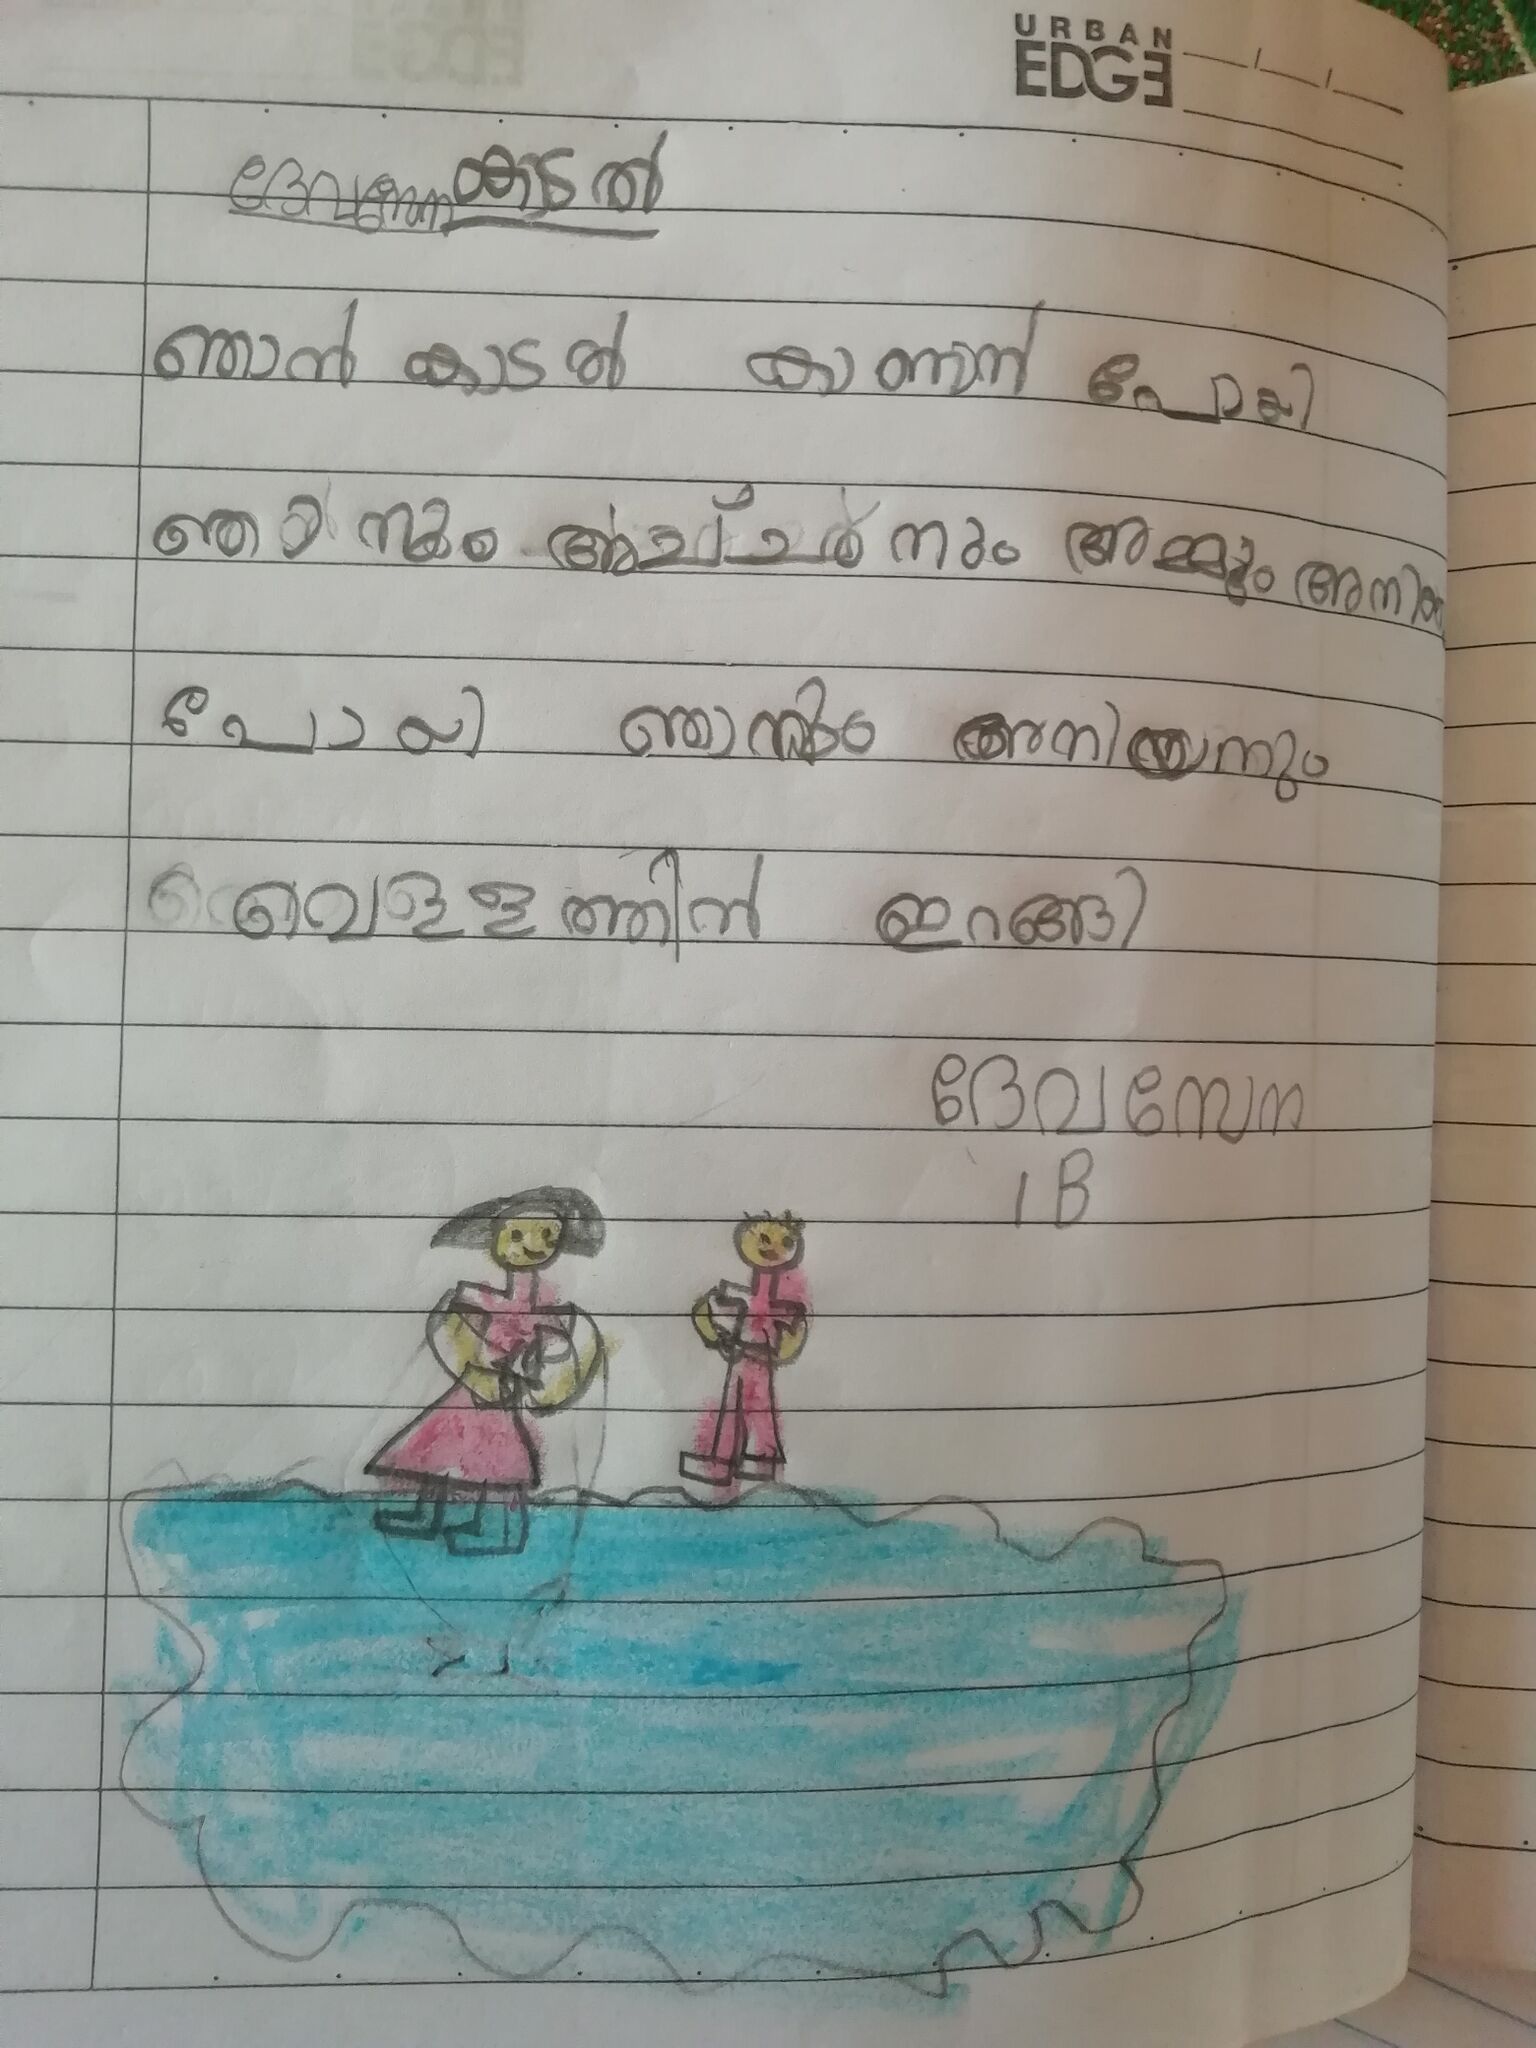 URBAN
EDGE
ദേവസേന കടൽ
ഞാൻ കാടൽ കാണാൻ പോയി
ഞാനും അച്ചനും അമ്മും
പോയി ഞാനും അനിയനും
വെളളത്തിൻ ഇറങ്ങി
ദേവസേന
1B